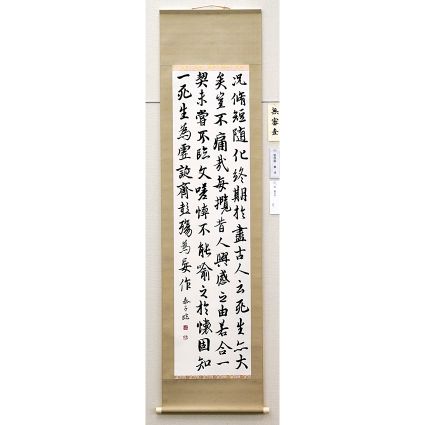 況脩短隨化終期於盡古人云死生亦大
矣豈不痛哉每攬昔人興感之由若合一
契未嘗不臨文嗟悼不能喻之於懷固知
一死生為虛誕齊彭殤為妄作
無審査